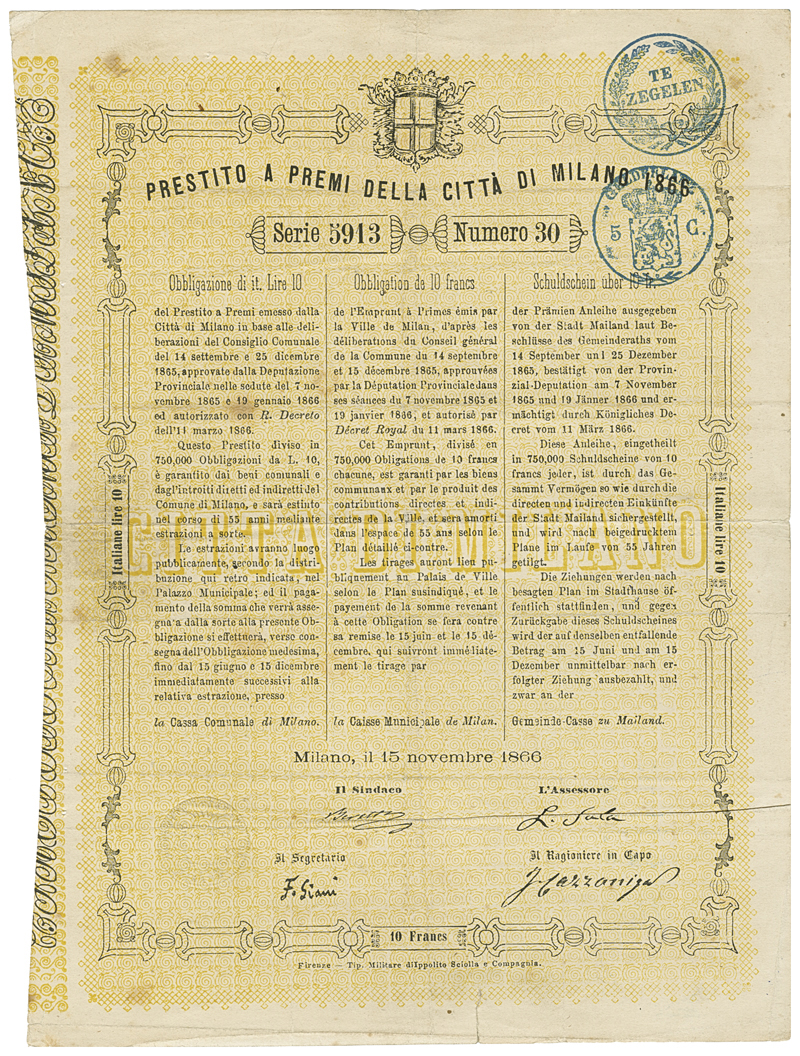 TE
ZEGELEN
PRESTITO A PREMI DELLA CITTÀ DI MILANO 1866
5 C.
Serie 5913 Numero 30
Obbligazione di it. Lire 10
del Prestito a Premi emesso dalla
Città di Milano in base alle deli-
berazioni del Consiglio Comunale
del 14 settembre e 25 dicembre
1865, approvate dalla Deputazione
Provinciale nelle sedute del 7 no-
vembre 1865 e 19 gennaio 1866
ed autorizzato con R. Decreto
dell'11 marzo 1866.
Questo Prestito diviso in
750,000 Obbligazioni da L. 10,
è garantito dai beni comunali e
dagl'introiti diretti ed indiretti del
Comune di Milano, e sarà estinto
nel corso di 55 anni mediante
estrazioni a sorte.
Le estrazioni avranno luogo
pubblicamente, secondo la distri-
buzione qui retro indicata, nel
Palazzo Municipale; ed il paga-
mento della somma che verrà asse-
gnata dalla sorte alla presente Ob-
bligazione si effettuerà, verso con-
segna dell'Obbligazione medesima,
fino dal 15 giugno e 15 dicembre
immediatamente successivi alla
relativa estrazione, presso
la Cassa Comunale di Milano.
Obbligation de 10 francs
de l'Emprunt à Primes émis par
la Ville de Milan, d'après les
déliberations du Conseil général
de la Commune du 14 septembre
et 15 décembre 1865, approuvées
par la Députation Provinciale dans
ses séances du 7 novembre 1865 et
19 janvier 1866, et autorisé par
Décret Royal du 11 mars 1866.
Cet Emprunt, divisé en
750,000 Obligations de 10 francs
chacune, est garanti par les biens
communaux et par le produit des
contributions directes et indi-
rectes de la Ville, et sera amorti
dans l'espace de 55 ans selon le
Plan détaillé ci-contre.
Les tirages auront lieu pu-
bliquement au Palais de Ville
selon le Plan susindiqué, et le
payement de la somme revenant
à cette Obligation se fera contre
sa remise le 15 juin et le 15 dé-
cembre, qui suivront immédiate-
ment le tirage par
la Caisse Municipale de Milan.
Schuldschein über 10 fr.
der Prämien Anleihe ausgegeben
von der Stadt Mailand laut Be-
schlüsse des Gemeinderaths vom
14 September und 25 Dezember
1865, bestätigt von der Provin-
zial-Deputation am 7 November
1865 und 19 Jänner 1866 und er-
mächtigt durch Königliches De-
cret vom 11 März 1866.
Diese Anleihe, eingetheilt
in 750,000 Schuldscheine von 10
francs jeder, ist durch das Ge-
sammt Vermögen so wie durch die
directen und indirecten Einkünfte
der Stadt Mailand sichergestellt,
und wird nach beigedrucktem
Plane im Laufe von 55 Jahren
getilgt.
Die Ziehungen werden nach
besagten Plan im Stadthause öf-
fentlich stattfinden, und gegen
Zurückgabe dieses Schuldscheines
wird der auf denselben entfallende
Betrag am 15 Juni und am 15
Dezember unmittelbar nach er-
folgter Ziehung ausbezahlt, und
zwar an der
Gemeinde-Casse zu Mailand.
CITTÀ DI MILANO
Italiane lire 10
Italiane lire 10
Milano, il 15 novembre 1866
Il Sindaco L'Assessore
L. Sala
Il Segretario Il Ragioniere in Capo
F. Giani J. Cazzaniga
10 Francs
Firenze — Tip. Militare di Ippolito Sciolla e Compagnia.